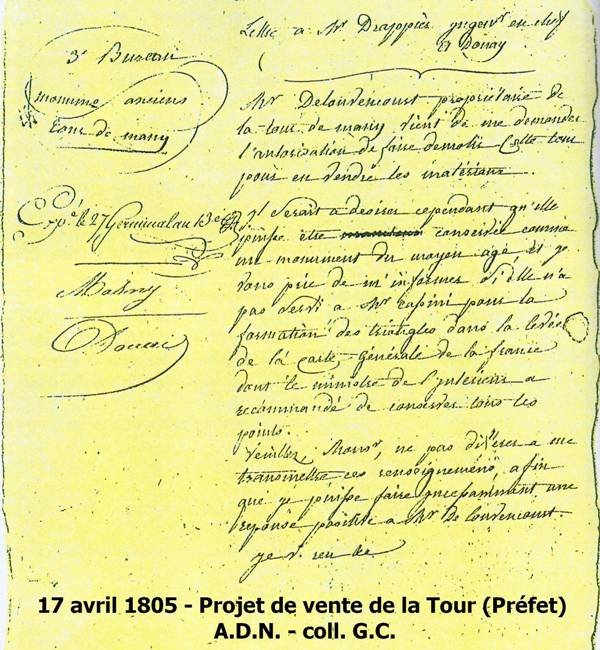 Lettre a Mr Drappier ingenr en chef
et Douay
3e Bureau
monume anciens
tour de many
Expé le 27 Germinal an 13e
Masny
Douai
Mr Delouvencourt propriétaire de
la tour de many vient de me demander
l'autorisation de faire demolir cette tour
pour en vendre les matériaux.
Il Serait a desirer cependant qu'elle
puisse etre conservée comme
un monument du moyen age, et je
vous prie de m'informer Si elle n'a
pas servi a Mr Cassini pour la
formation des triangles dans la levée
de la Carte Générale de la france
dont le ministre de l'intérieur a
recommandé de conserver tous les
points.
Veuillez, Monsr, ne pas différer a me
transmettre ces renseignemens, afin
que je puisse faire incessamment une
réponse positive a Mr de Louvencourt.
17 avril 1805 - Projet de vente de la Tour (Préfet)
A.D.N. - coll. G.C.